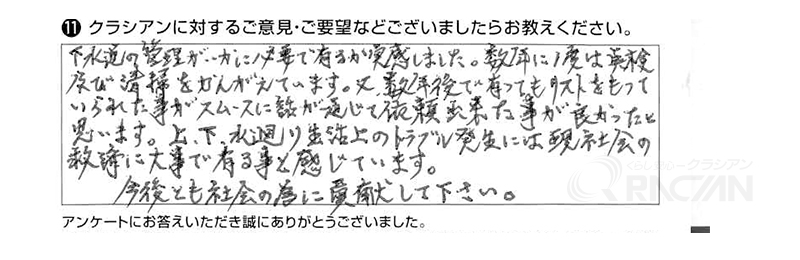 ⑪ クラシアンに対するご意見・ご要望などございましたらお教えください。
下水道の管理がいかに必要で有るか実感しました。数年に1度は点検
及び清掃をかんがえています。又、数年後で有ってもリストをもって
いられた事がスムースに話が通じて依頼出来た事が良かったと
思います。上、下、水廻り生活上のトラブル発生には現社会の
救済に大事で有る事と感じています。
今後とも社会の為に貢献して下さい。
くらしあん~クラシアン
QRACIAN
アンケートにお答えいただき誠にありがとうございました。